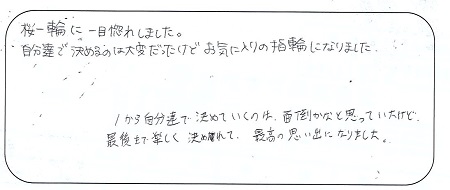 桜一輪に一目惚れしました。
自分達で決めるのは大変だったけどお気に入りの指輪になりました.
1から自分達で決めていくのは、面倒かなと思っていたけど、
最後まで楽しく決めれて、最高の思い出になりました。